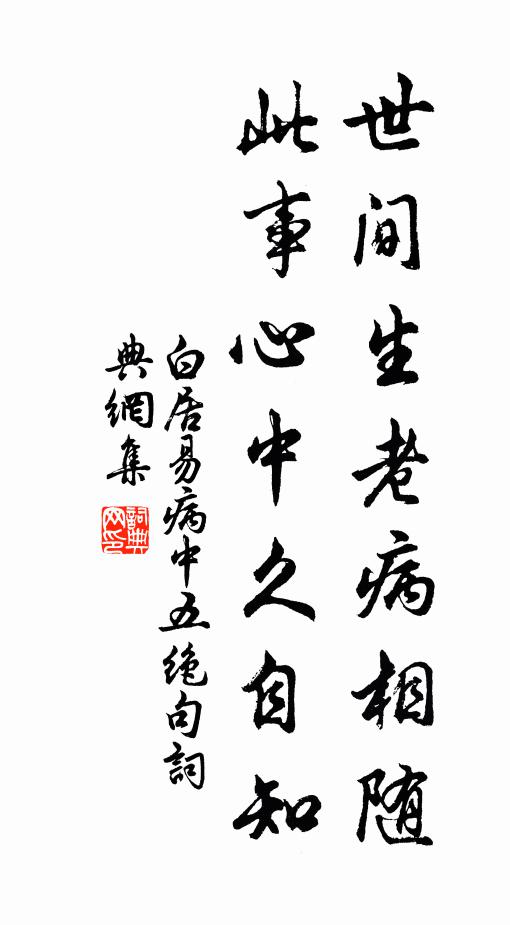 世间生老病相随
此事心中久自知
白居易病中五绝句詞
典網集
詞典网印